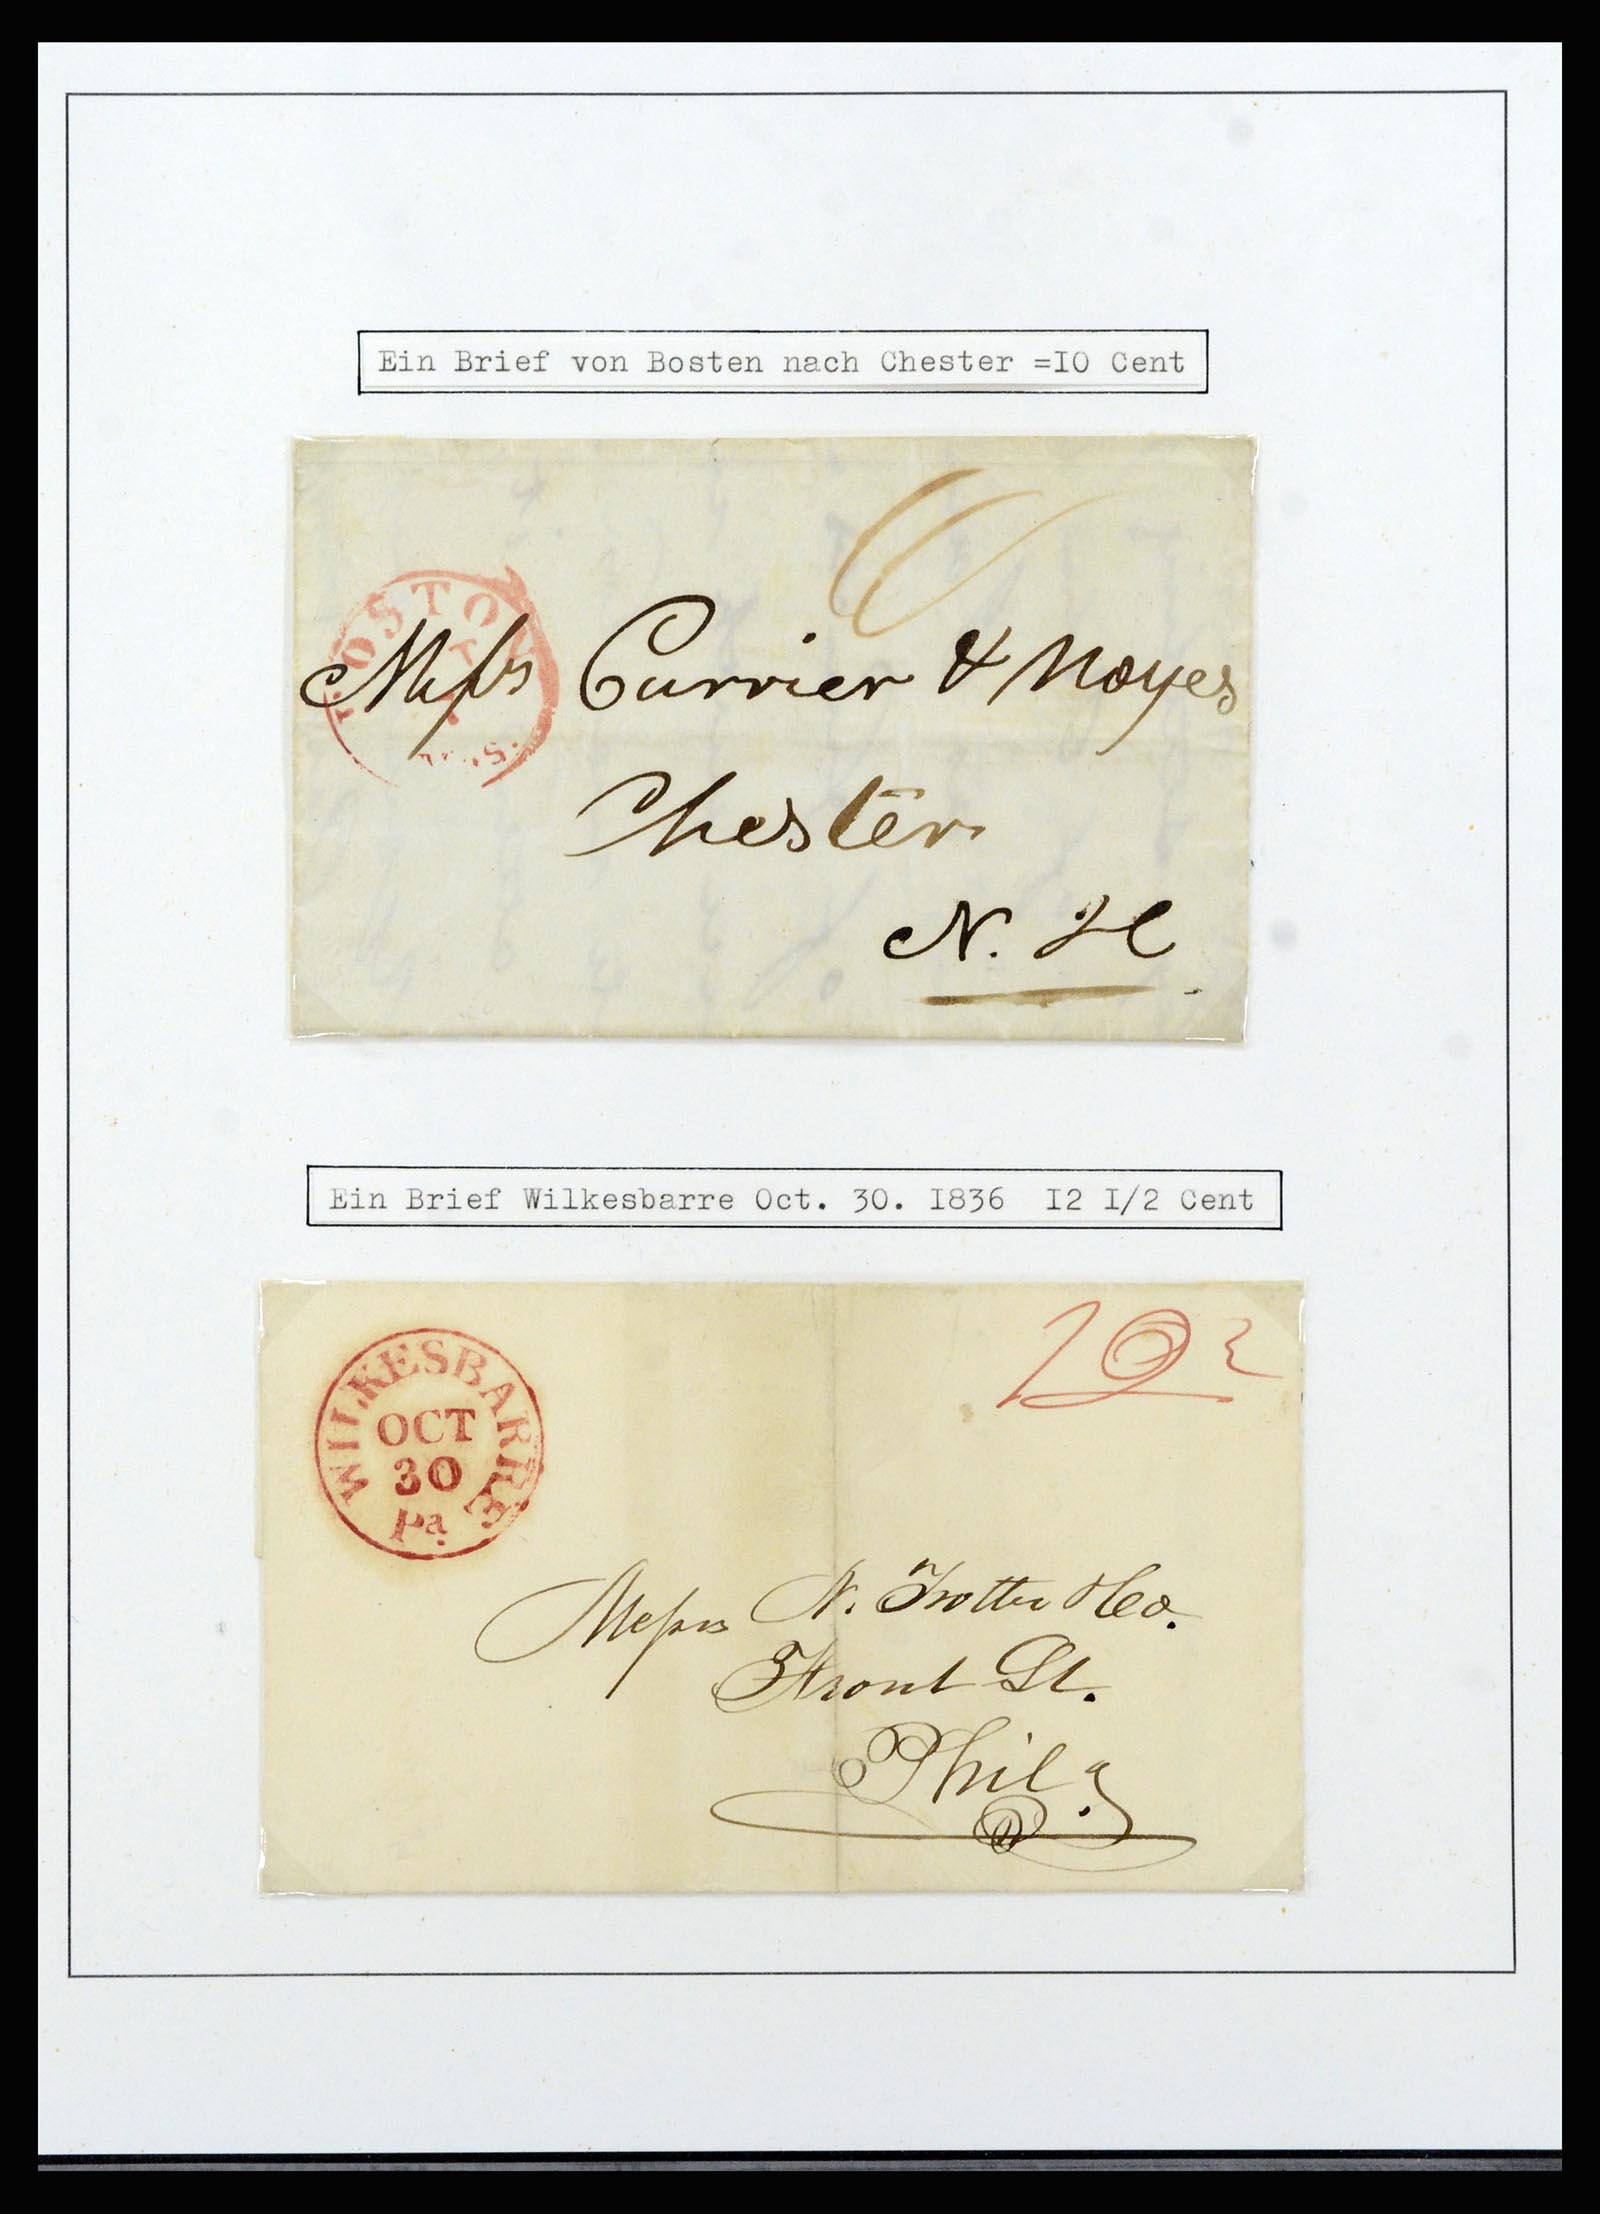 Ein Brief von Bosten nach Chester =IO Cent
10
BOSTON
MS.
Messrs Currier & Noyes
Chester
N. H.
Ein Brief Wilkesbarre Oct. 30. I836 I2 I/2 Cent
WILKESBARRE
OCT
30
Pa.
Messrs N. Trotter & Co.
Front St.
Phila.